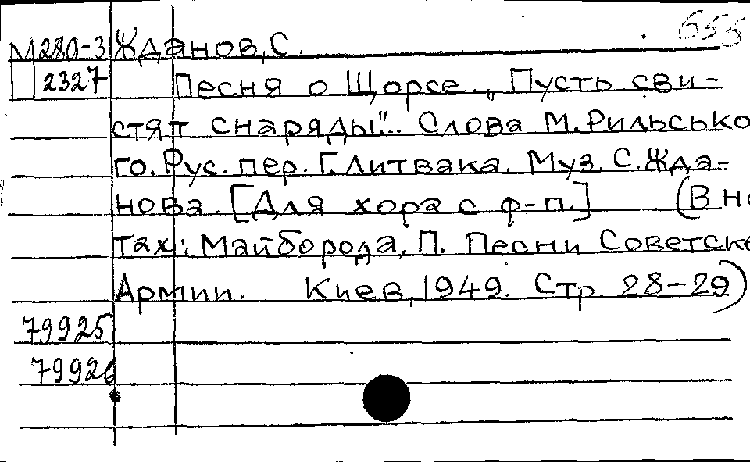 655
М280-3 Жданов, С.
2327 Песня о Щорсе. „Пусть сви-
стят снаряды"... Слова М. Рильсько
го. Рус. пер. Г. Литвака. Муз. С. Жда-
нова. [Для хора с ф-п.] (В но
тах: Майборода, П. Песни Советско
Армии. Киев, 1949. Стр. 28-29)
79925
79926